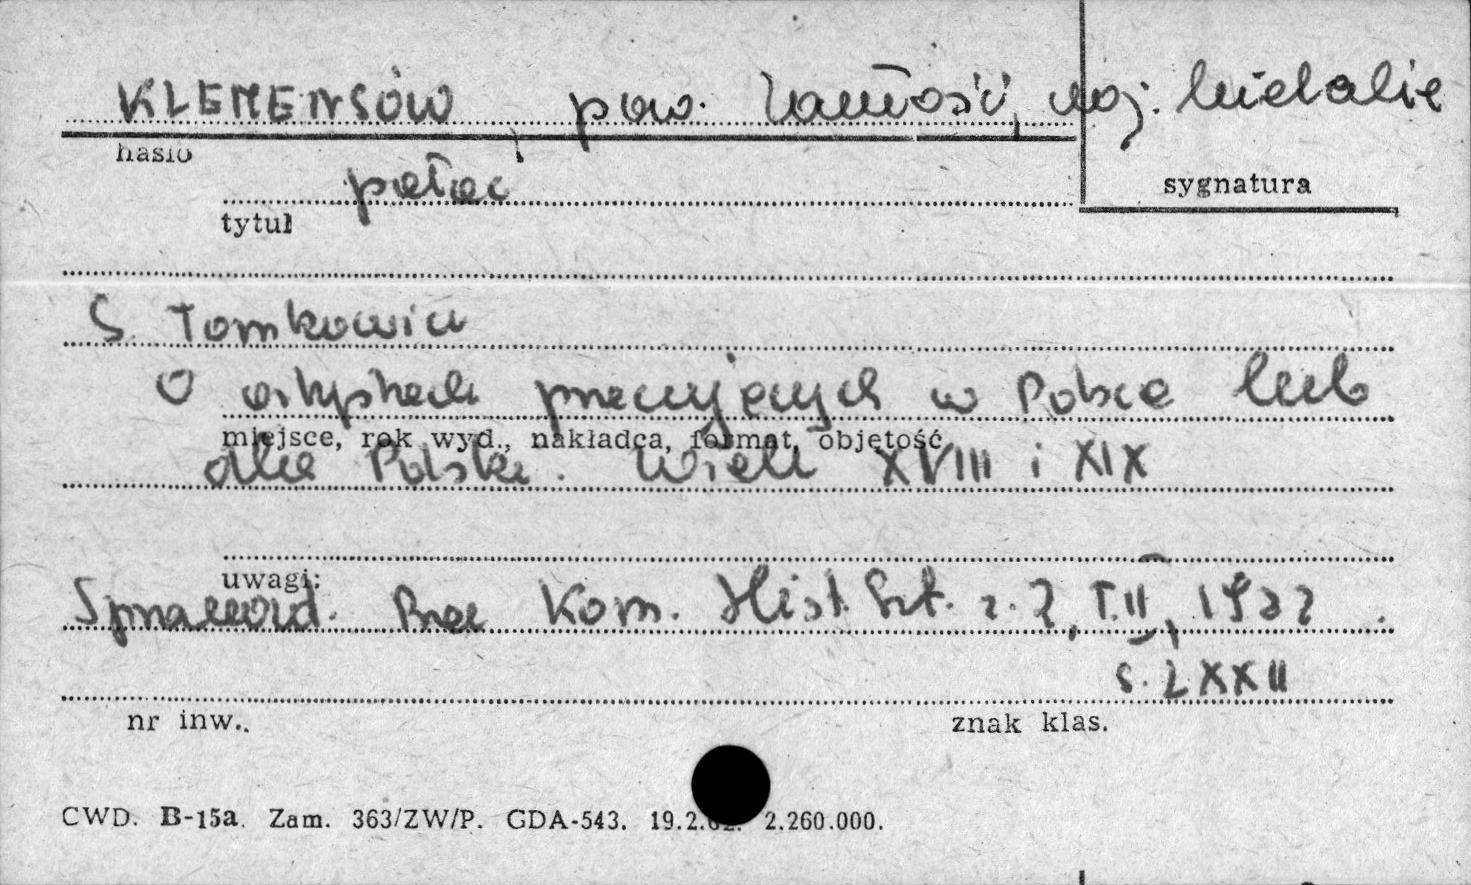 KLEMENSÓW, pow. Zamość, woj. lubelskie
hasło
sygnatura
pałac
tytuł
S. Tomkowicz
O artystach pracujących w Polsce lub
miejsce, rok wyd., nakładca, format, objętość
dla Polski. Wiek XVIII i XIX
uwagi:
Sprawozd. Prac Kom. Hist. Szt. z. 2, T. II, 1922.
s. LXXII
nr inw..
znak klas.
CWD. B-15a. Zam. 363/ZW/P. GDA-543. 19.2.62. 2.260.000.